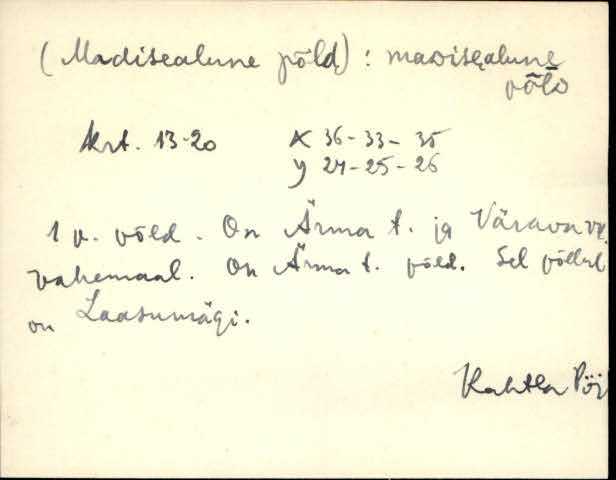 (Madisealune põld) : maDisealune
põlD
krt. 13-20 X 36-33-35
y 24-25-26
1 v. põld. On Ärma t. ja Värava
vahemaal. On Ärma t. põld. Sel põllul
on Laasumägi.
Kahtla Pöi